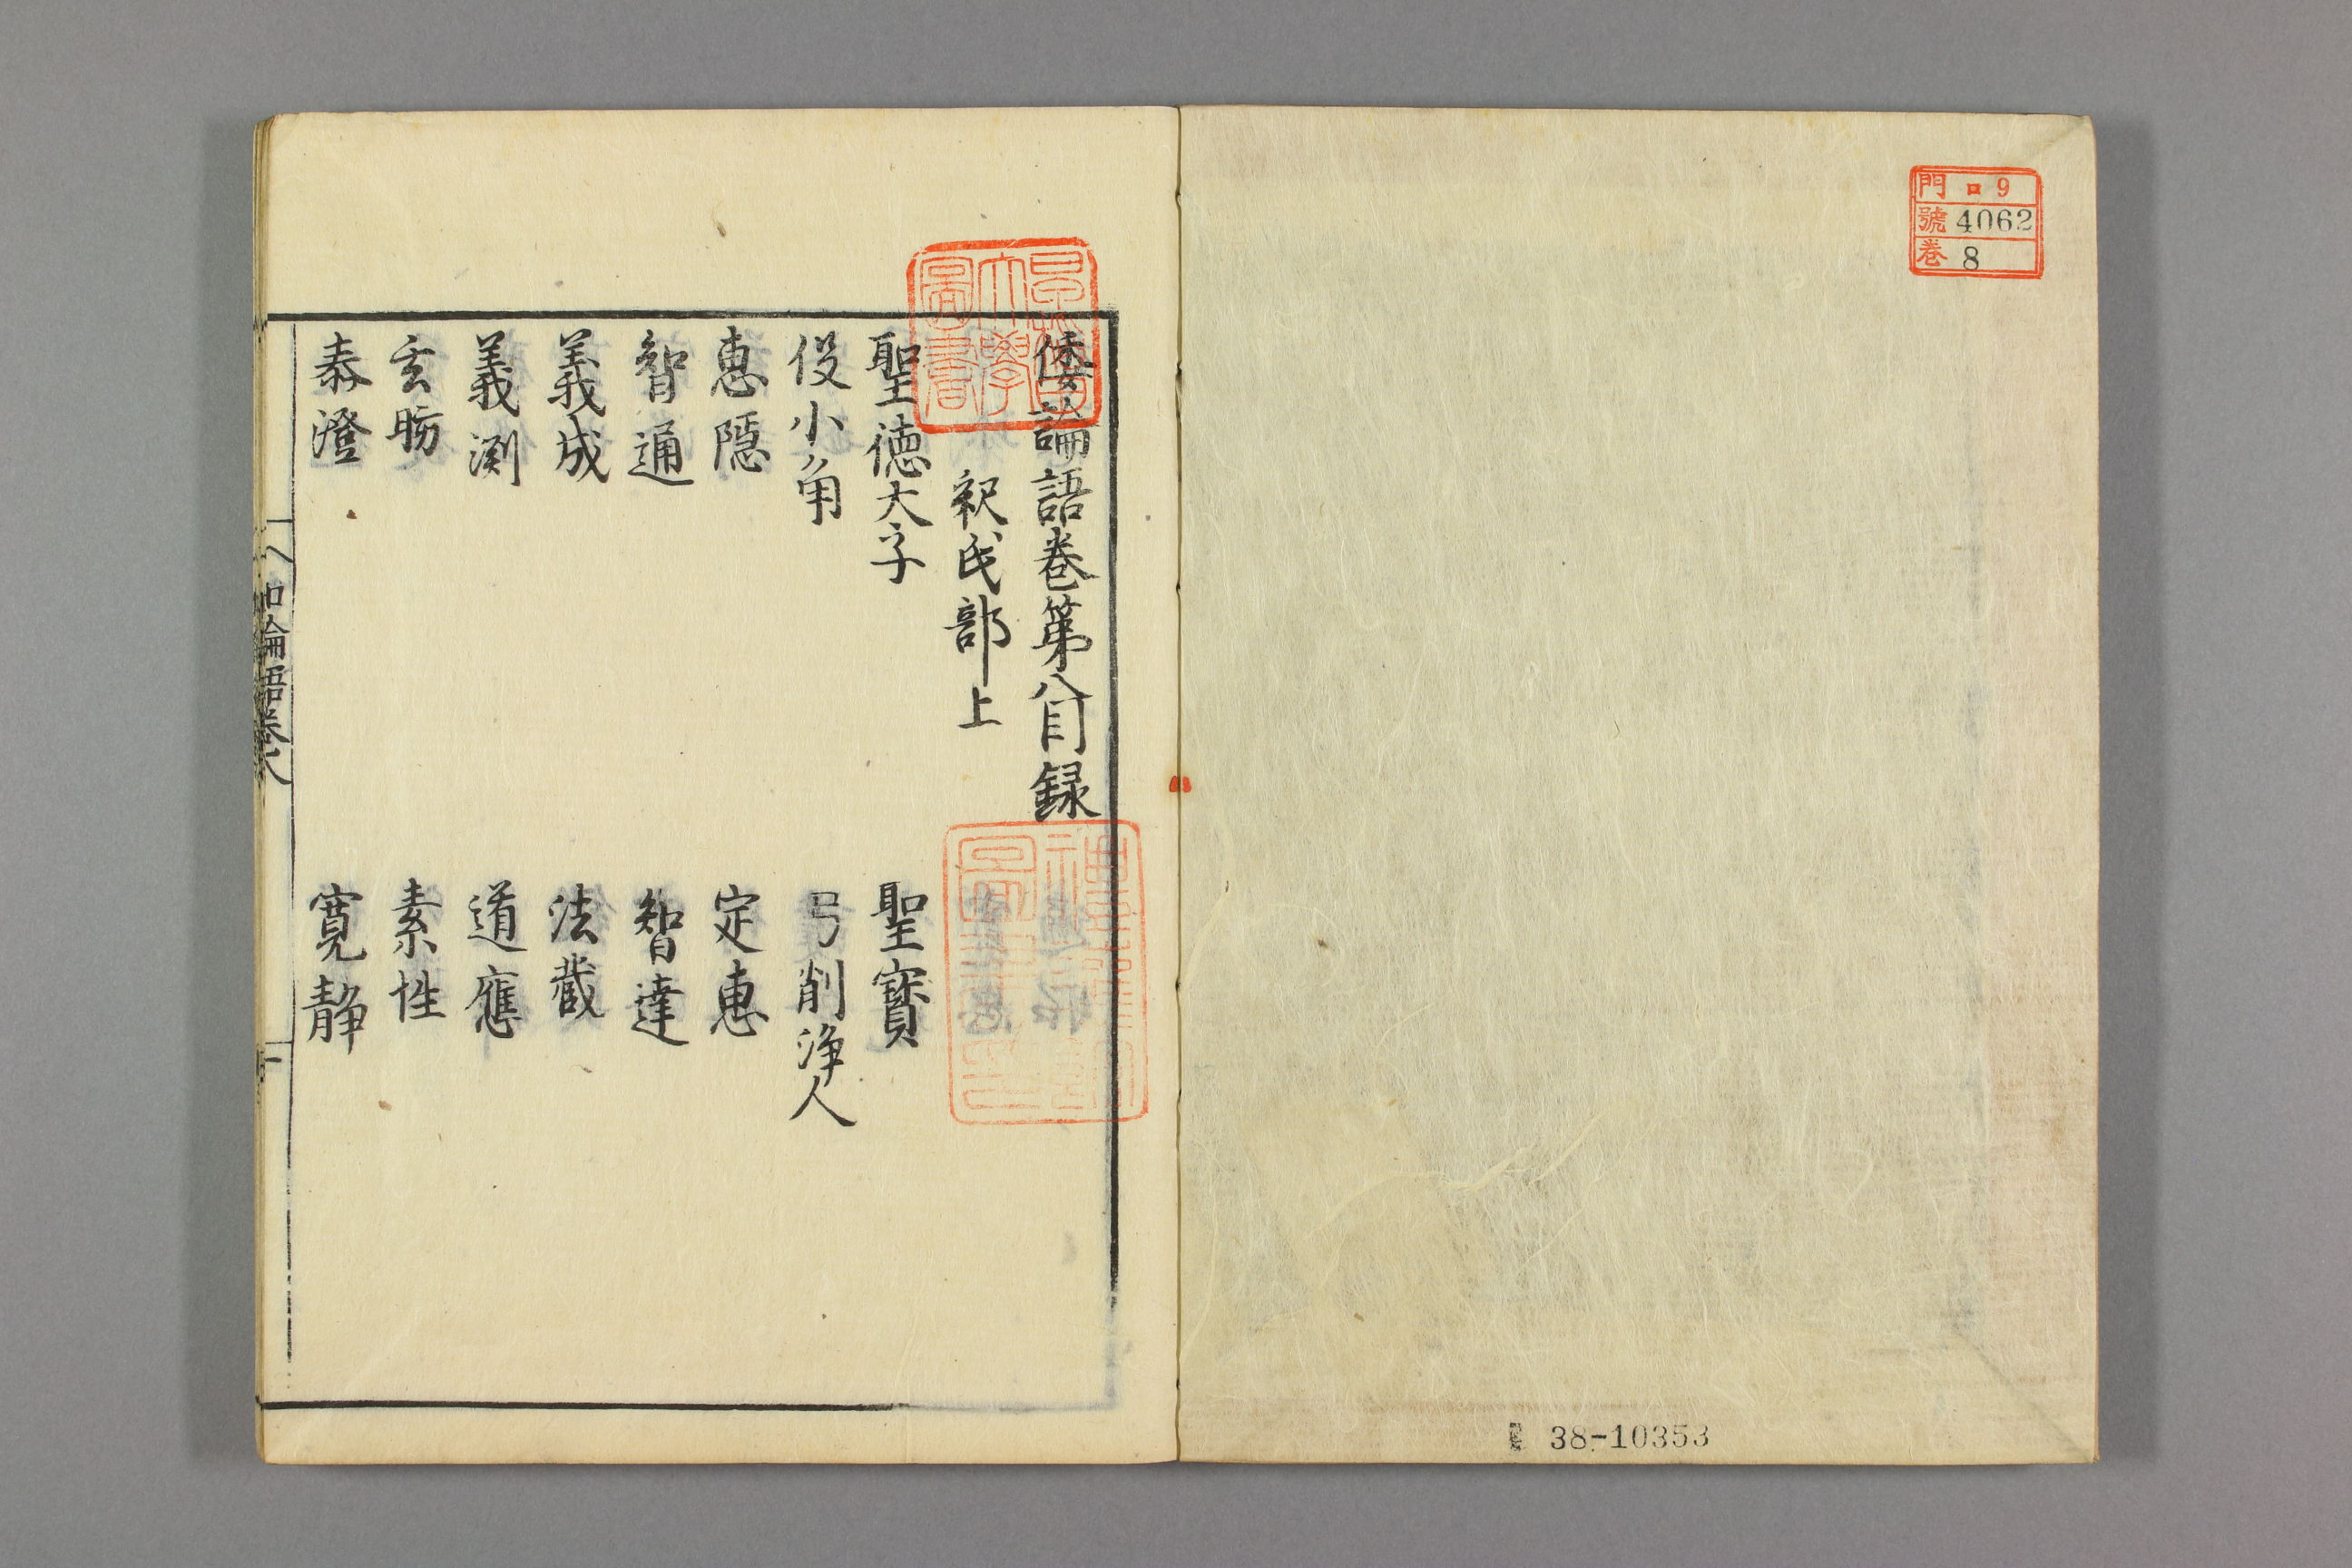 門 ロ 9
號 4062
卷 8
38-10353
倭論語卷第八目録
釈氏部上
聖徳太子 聖寳
役小角 弓削淨人
惠隠 定惠
智通 智達
義成 法藏
義渕 道應
玄昉 素性
泰澄 寛静
和論語卷八 一